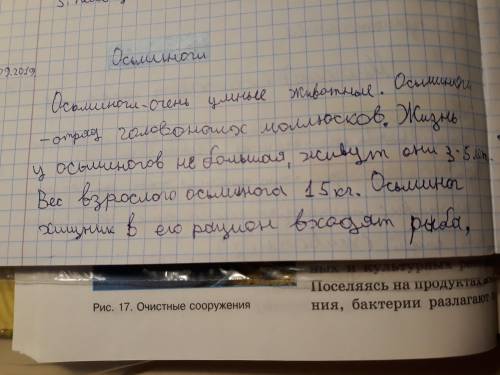 09.2019
Осьминоги
Осьминоги-очень умные животные. Осьминоги
-отряд головоногих моллюсков. Жизнь
у осьминогов не большая, живут они 3-5 лет.
Вес взрослого осьминога 15 кг. Осьминог
хищник в его рацион входят рыба,
Рис. 17. Очистные сооружения
ных и культурных
Поселяясь на продуктах
ния, бактерии разлагают